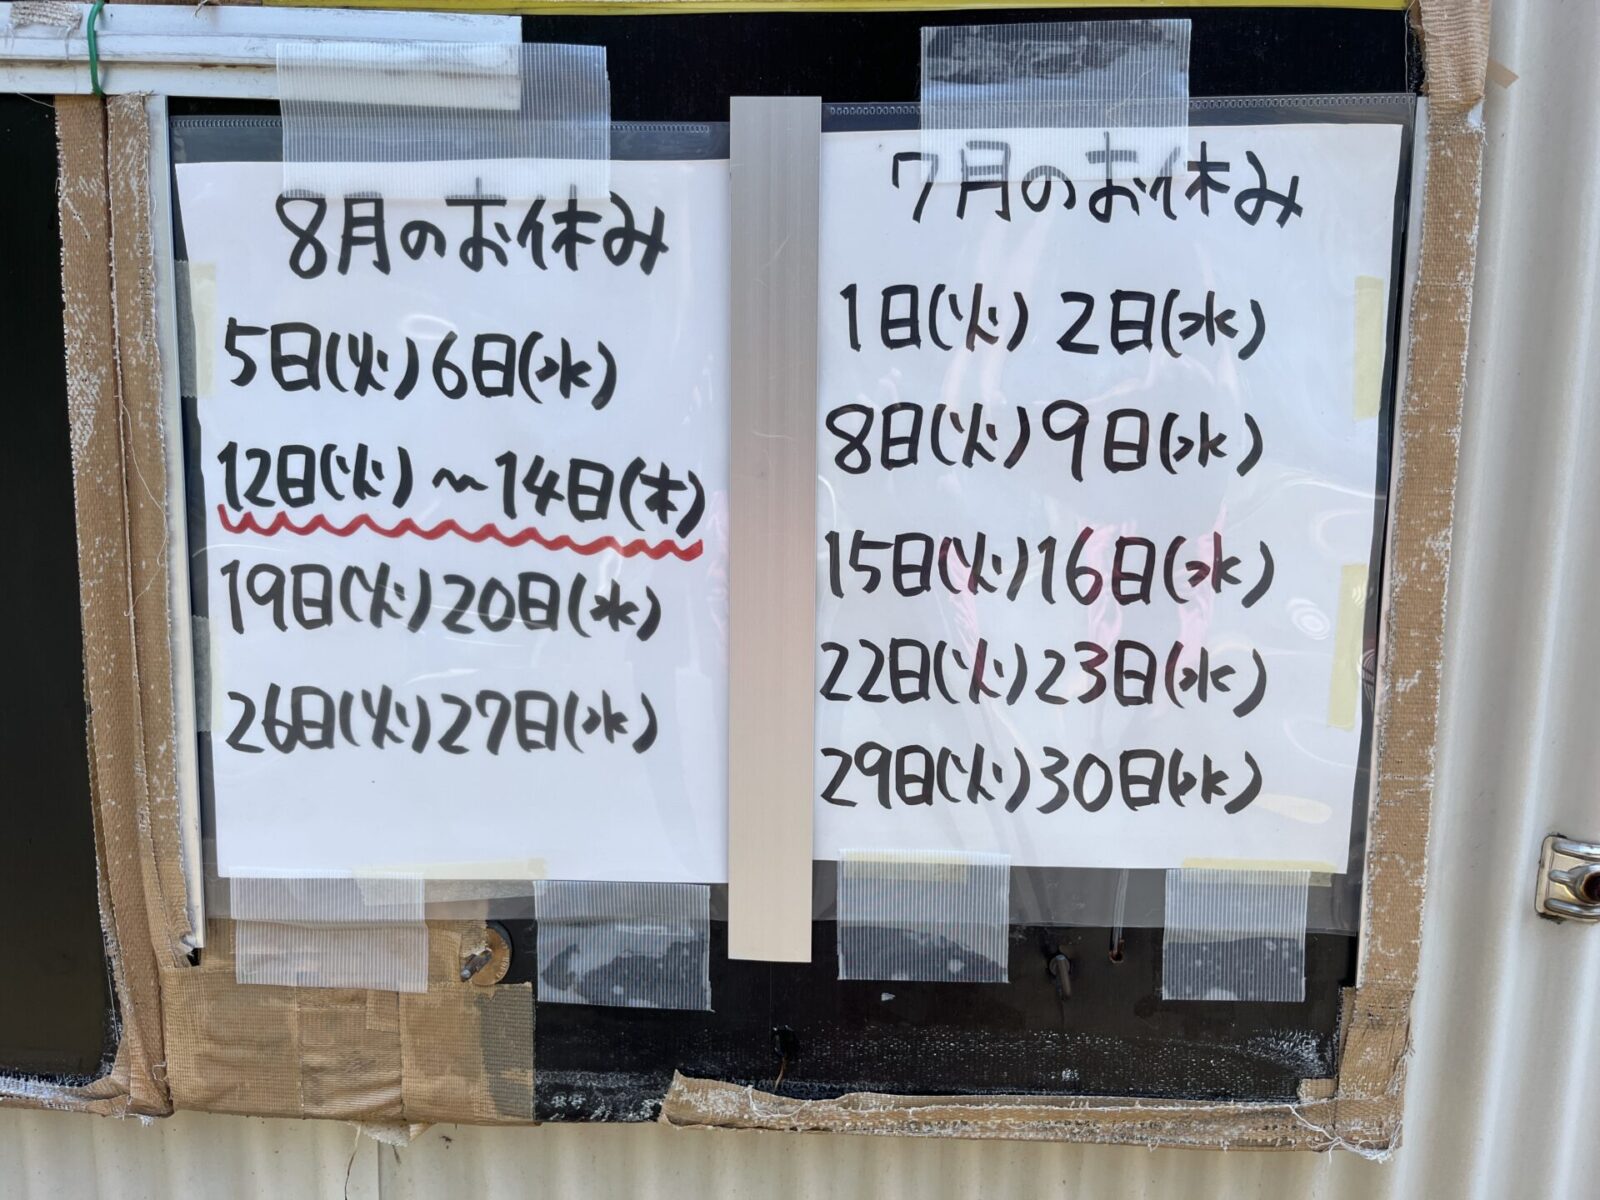 8月のお休み
5日(火)6日(水)
12日(火)〜14日(木)
19日(火)20日(水)
26日(火)27日(水)
7月のお休み
1日(火) 2日(水)
8日(火)9日(水)
15日(火)16日(水)
22日(火)23日(水)
29日(火)30日(水)